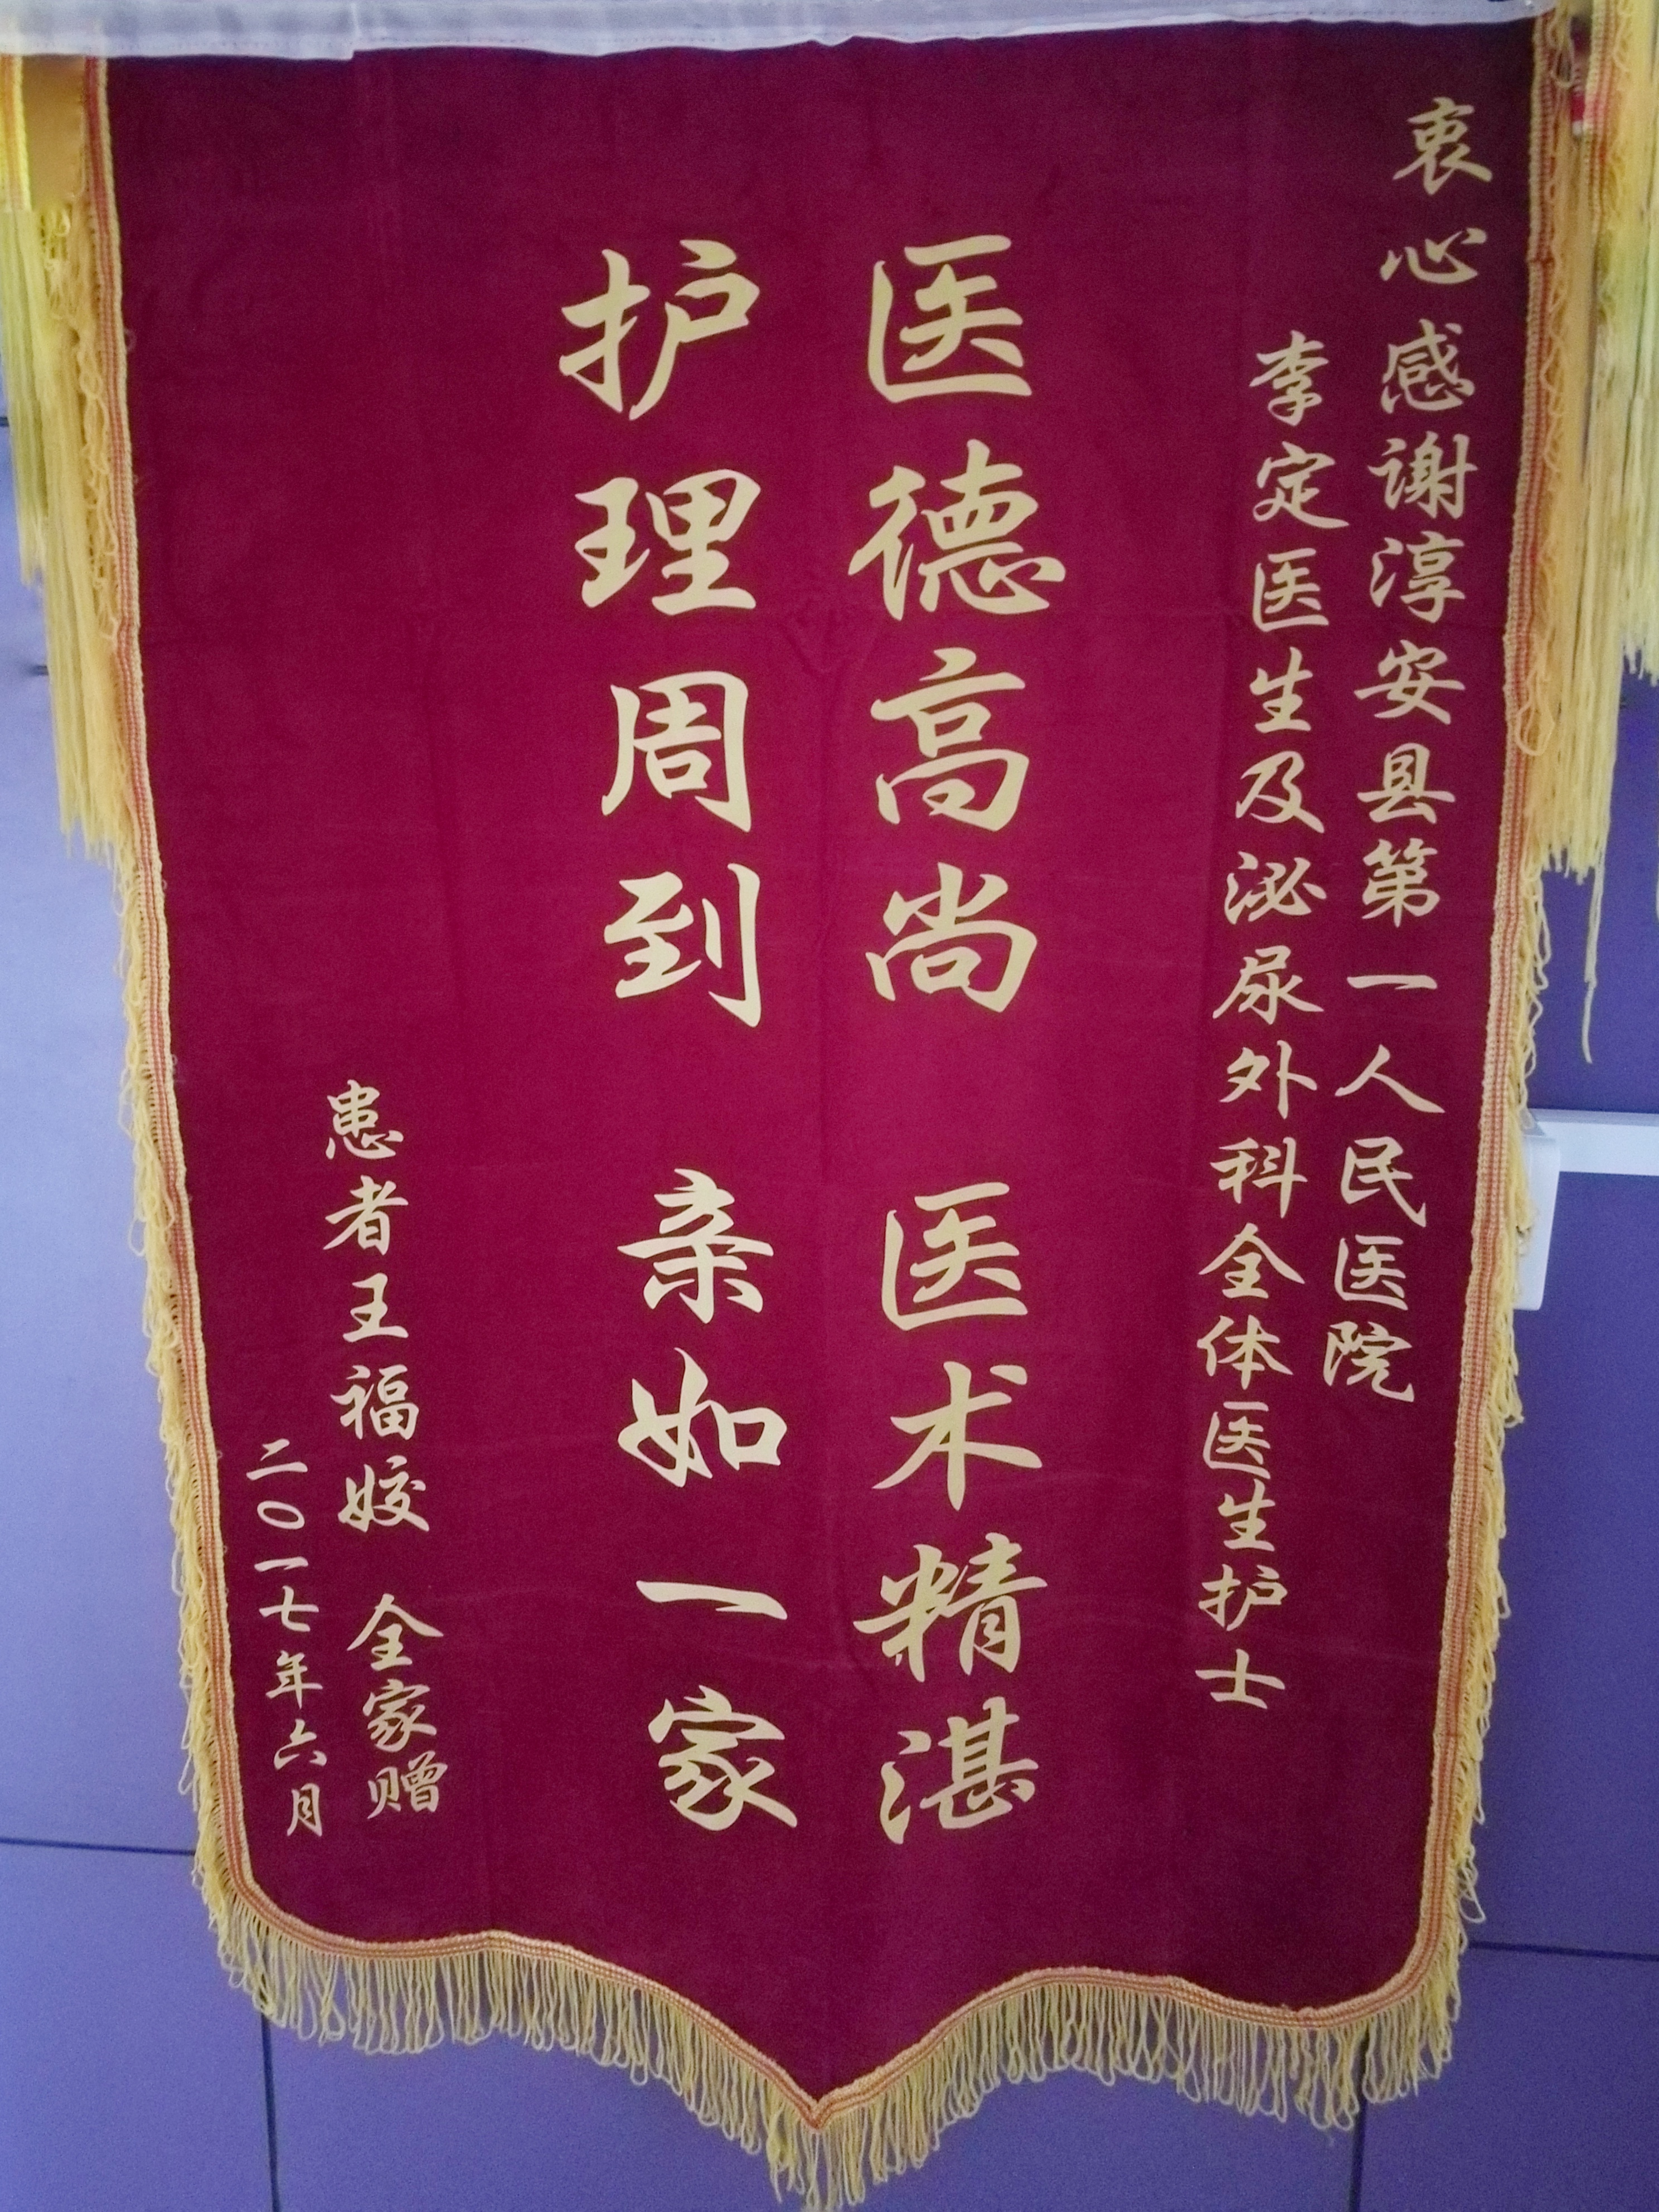 衷心感谢淳安县第一人民医院
李定医生及泌尿外科全体医生护士
医德高尚 医术精湛
护理周到 亲如一家
患者王福姣 全家赠
二〇一七年六月